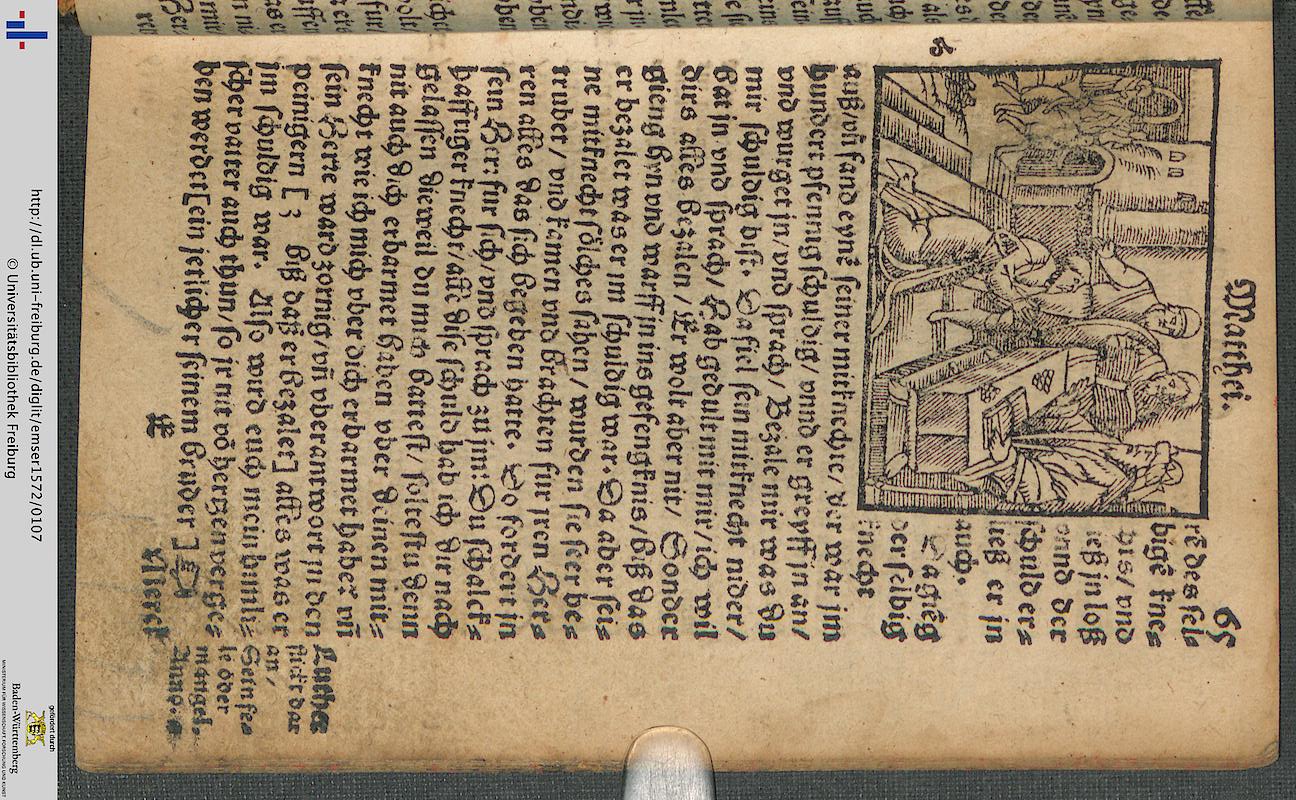 Matthei.
65
re des sel-
bigē kne-
htes/ vnd
ließ jn loß
vnnd der
schuld er-
ließ er jn
auch.
Da gieg
der selbig
knecht
auß/vn̄ fand eynē seiner mitknechte/ der war jm
hundert pfennig schuldig/ vnnd er greyff jn an/
vnd wurget jn/ vnd sprach/ Bezale mir was du
mir schuldig bist. Da fiel sein mitknecht nider/
Bat jn vnd sprach/ Hab gedult mit mir/ ich wil
dirs alles bezalen/ Er wolt aber nit/ Sonder
gieng hyn vnd warff jn ins gefengknis/ biß das
er bezalet was er im schuldig war. Da aber sei-
ne mitknecht sölches sahen/ wurden sie ser be-
trubet/ vnd kamen vnd brachten fur jren Her-
ren alles das sich begeben hatte. Do fordert jn
sein Herr fur sich/ vnd sprach zu jm: Du schalck-
hafftiger knecht/ alle diese schuld hab ich dir nach
gelassen dieweil du mich batest/ soltestu denn
nit auch dich erbarmet haben vber deinen mit-
knecht wie ich mich vber dich erbarmet habe: vn̄
sein Herre ward zornig/ vn̄ vberantwort jn den
peinigern [ ; biß daß er bezalet] alles was er
jm schuldig war. Also wird euch mein himli-
scher vater auch thun/ so jr nit vō hertzen verge-
ben werdet [ein jetlicher seinem bruder ]
Luther
flickt dar
an/
Sein fe-
le oder
mangel.
Anno.
http://dl.ub.uni-freiburg.de/diglit/emser1572/0107
© Universitätsbibliothek Freiburg
gefördert durch
Baden-Württemberg
MINISTERIUM FÜR WISSENSCHAFT, FORSCHUNG UND KUNST